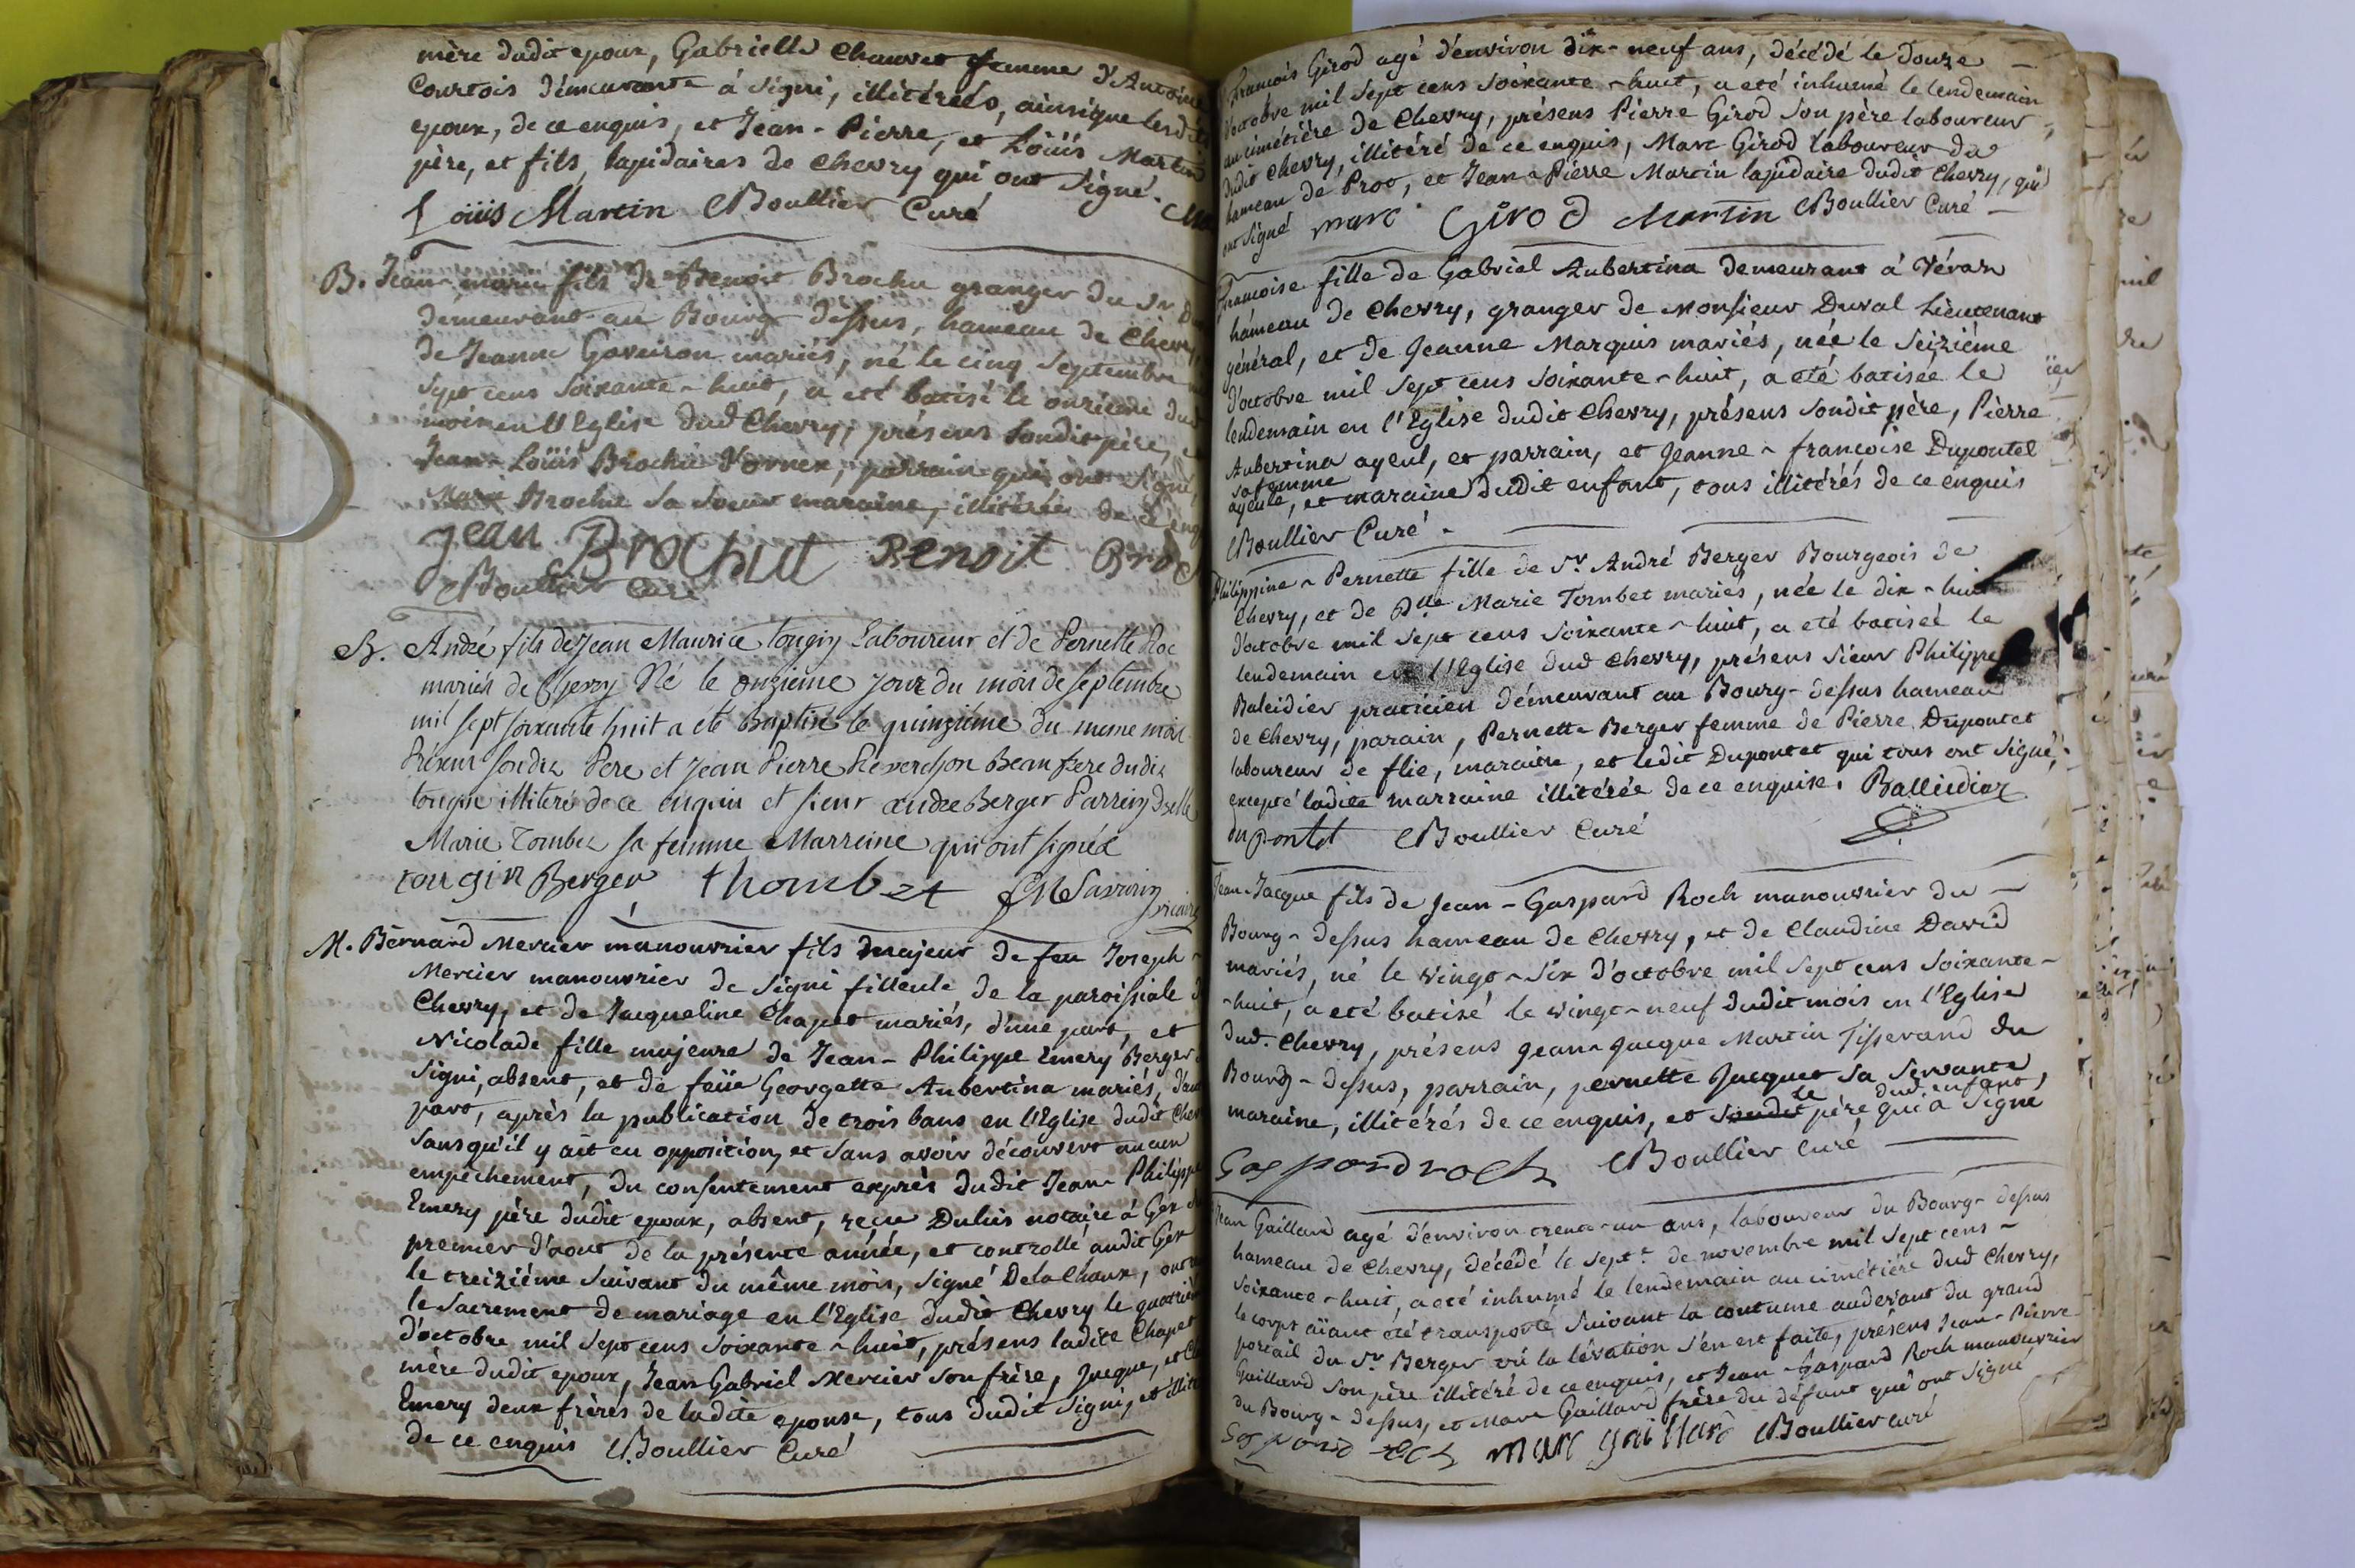 mère dudit epoux, Gabrielle Chauvet femme d'Antoine
Courtois démeurante á Signi, illitérées, ainsique lesdits
epoux, de ce enquis, et Jean-Pierre, et Loüis Martin
père, et fils, lapidaires de Chevry qui ont signé.
Loüis Martin Boullier Curé
B. Jean-marie fils de Benoit Brochu granger du Sr
démeurant au Bourg-dessus, hameau de Chevry,
de Jeanne Goveiron mariés, né le cinq Septembre
sept cens soixante-huit, a eté batisé le onzième dud
mois en l'Eglise dud Chevry, présens sondit père,
Jean-Loüis Brochu Vornex, parrain qui ont signé,
Marie Brochu sa soeur maraine, illitérée de ce enq
Jean Brochut Benoit Broch
Boullier Curé
B. André fils de Jean Maurice tougin Laboureur et de Pernette Roc
mariés de Chevry Né le onzieme jour du mois de septembre
mil sept soixante huit a eté baptisé le quinzième du meme mois
Présent sondit Pere et Jean Pierre Reverchon Beau frere dudit
tougin illiteré de ce enquis et sieur andre Berger Parrein, Dselle
Marie Tombet sa femme Marreine qui ont signés
tougin Berger thombet Savarin vicaire
M. Bernard Mercier manouvrier fils majeur de feu Joseph
Mercier manouvrier de Signi filleule de la paroissiale d
Chevry, et de Jacqueline Chapet mariés, d'une part, et
Nicolade fille majeure de Jean-Philippe Emery Berger
Signi, absent, et de feüe Georgette Aubertina mariés, d'au
part, après la publication de trois bans en l'Eglise dudit Chev
sans qu'il y ait eu opposition, et sans avoir découvert aucun
empêchement, du consentement exprès dudit Jean-Philippe
Emery père dudit epoux, absent, reçu Duluis notaire á Gex
premier d'aout de la présente année, et controllé audit Gex
le treizième suivant du même mois, signé Delachaux, ont re
le sacrement de mariage en l'Eglise dudit Chevry le quatrièm
d'octobre mil sept cens soixante-huit, présens ladite Chapet
mère dudit epoux, Jean Gabriel Mercier son frère, Jacque, et
Emery deux frères de ladite epouse, tous dudit Signi, et illité
de ce enquis Boullier Curé
francois Girod agé d'environ dix-neuf ans, décédé le douze
d'octobre mil sept cens soixante-huit, a eté inhumé le lendemain
au cimétiére de Chevry, présens Pierre Girod son père laboureur
dudit Chevry, illitéré de ce enquis, Marc Girod laboureur du
hameau de Prot, et Jean-Pierre Martin lapidaire dudit Chevry, qui
ont signé marc Girod Martin Boullier Curé
francoise fille de Gabriel Aubertina demeurant á Véran
hámeau de Chevry, granger de Monsieur Duval Lieutenant
général, et de Jeanne Marquis mariés, née le seizième
d'octobre mil sept cens soixante-huit, a eté batisée le
lendemain en l'Eglise dudit Chevry, présens sondit père, Pierre
Aubertina ayeul, et parrain, et Jeanne-francoise Dupontel
sa femme
ayeule, et maraine dudit enfant, tous illitérés de ce enquis
Boullier Curé
Philippine-Pernette fille de Sr. André Berger Bourgeois de
Chevry, et de Dlle Marie Tombet mariés, née le dix-huit
d'octobre mil sept cens soixante-huit, a eté batisée le
lendemain en l'Eglise dud Chevry, présens sieur Philippe
Baleidier praticien démeurant au Bourg-dessus hameau
de Chevry, parain, Pernette Berger femme de Pierre Dupontet
laboureur de flie, maraine, et ledit Dupontet qui tous ont signé,
excepté ladite marraine illitérée de ce enquise. Balleidier
du pontet Boullier Curé
Jean-Jacque fils de Jean-Gaspard Roch manouvrier du
Bourg-dessus hameau de Chevry, et de Claudine David
mariés, né le vingt-six d'octobre mil sept cens soixante-
-huit, a eté batisé le vingt-neuf dudit mois en l'Eglise
dud. Chevry, présens Jean-Jacque Martin Tisserand du
Bourg-dessus, parrain, pernette Jacquet sa servante
maraine, illitérés de ce enquis, et sondit le père dud enfant, qui a signé
Gaspardroch Boullier Curé
Jean Gaillard agé d'environ trente-un ans, laboureur du Bourg-dessus
hameau de Chevry, décédé le sept.e de novembre mil sept cens-
soixante-huit, a eté inhumé le lendemain au cimétière dud Chevry,
le corps aïant été transporté suivant la coutume audevant du grand
portail du Sr Berger où la lévation s'en est faite, présens Jean-Pierre
Gaillard son père illitéré de ce enquis, et Jean-Gaspard Roch manouvrier
du Bourg-dessus, et Marc Gaillard frère du défunt qui ont signé
Gaspard Roch marc gaillard Boullier curé